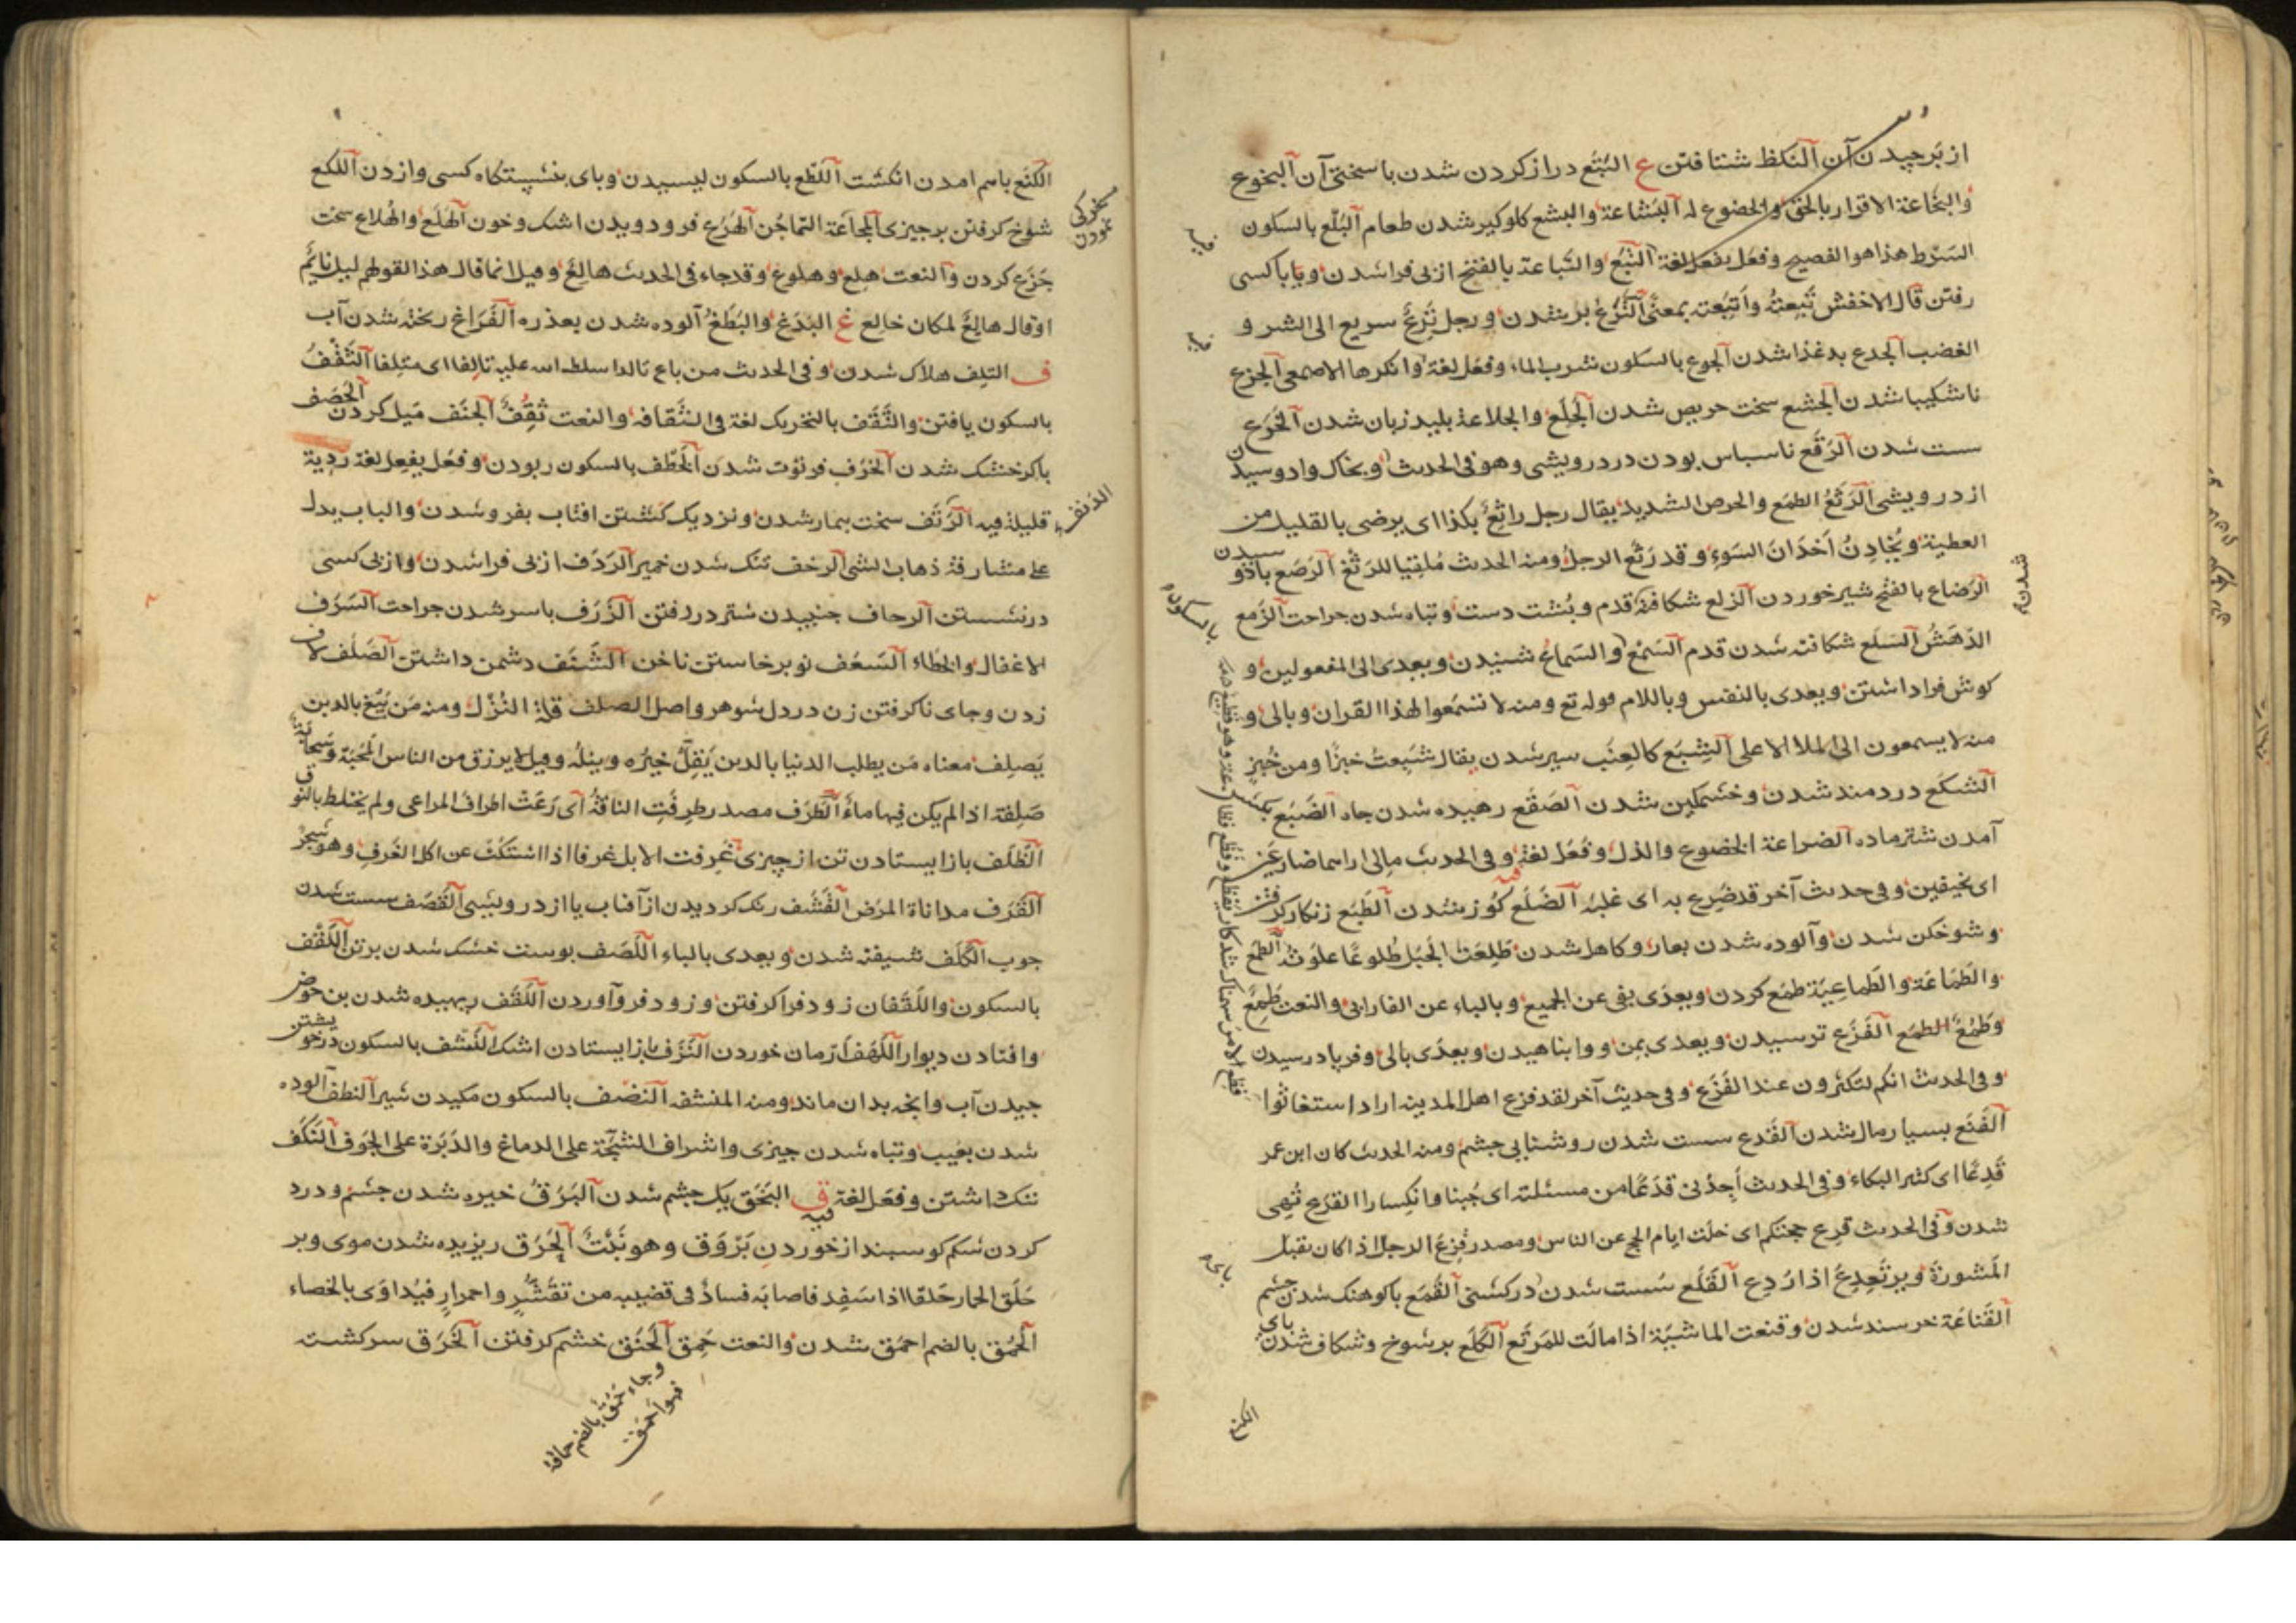 از برچیدن آن النکظ شتافتن ع البتع دراز کردن شدن با سختی آن البخوع
والبخاعة الاقرار بالحق والخضوع له البشاعة والبشع کلوکیر شدن طعام البلع بالسکون
السرط هذا هو الفصیح وفعل یفعل لغة التبع والتباعة بالفتح از پی فرا شدن وبا با کسی
رفتن قال الاخفش تبعته واتبعته بمعنی النزع بر شدن ورجل نزع سریع الی الشر و
الغضب الجدع بد غذا شدن الجوع بالسکون شرب الماء وفعل لغة وانکرها الاصمعی الجزع
ناشکیبا شدن الجشع سخت حریص شدن الجلع والجلاعة بلید زبان شدن الخرع
سست شدن الرقع ناسباس بودن در درویشی وهو فی الحدیث وبخاک وا دوسیدن
از درویشی الرثع الطمع والحرص الشدید یقال رجل راثع بکذا ای یرضی بالقلیل من
العطیة ویخادن اخدان السوء وقد رثع الرجل ومنه الحدیث ملقیا للرثع الرصع باذو سیدن
الرضاع بالفتح شیر خوردن الزلع شکافته قدم وپشت دست وتباه شدن جراحت الزمع
الدهش السلع شکافته شدن قدم السمع والسماع شنیدن ویعدی الی المفعولین و
کوش فرا داشتن ویعدی بالنفس وباللام قوله تع ومنه لا تسمعوا لهذا القران وبالی و
منه لا یسمعون الی الملا الاعلی الشبع کالعنب سیر شدن یقال شبعت خبزا ومن خبز
الشکع دردمند شدن وخشمکین شدن الصقع رهیده شدن جاه الضبع
آمدن شتر ماده الضراعة الخضوع والذل وفعل لغة وفی الحدیث مالی اراهما ضارعین
ای نحیفین وفی حدیث آخر قد ضرع به ای غلبه الضلع کوز شدن الطبع زنکار کرفتن
وشوخکن شدن وآلوده شدن بعار وکاهل شدن طلعت الجبل طلوعا علوته الطمع
والطماعة والطماعیة طمع کردن ویعدی بفی عن الجمیع وبالباء عن الفارابی والنعت طمع
وطمع الطمع الفزع ترسیدن ویعدی بمن ووا بناهیدن ویعدی بالی وفریاد رسیدن
وفی الحدیث انکم لتکثرون عند الفزع وفی حدیث آخر لقد فزع اهل المدینه اراد استغاثوا
الفنع بسیار مال شدن القدع سست شدن روشنایی چشم ومنه الحدیث کان ابن عمر
قدعا ای کثیر البکاء وفی الحدیث اجدنی قدعا من مسئلته ای جبنا وانکسارا القرع تهی
شدن وفی الحدیث قرع حجکم ای خلت ایام الحج عن الناس ومصدر قرع الرجل اذا کان یقبل
المشورة ویرتعدع اذا ردع القلع سست شدن در کشتی القمع باکوهنک شدن چشم
القناعة خرسند شدن وقنعت الماشیة اذا مالت للمرتع الکلع بر شوخ وشکاف شدن پای
الکنع
شدن
بالسکون
الکنع باسم امدن انکشت اللطع بالسکون لیسیدن وپای بنشیستکاه کسی وازدن اللکع
شوخ کرفتن بر چیزی المجاعة التماجن الهرع فرو دویدن اشک وخون الهلع والهلاع سخت
جزع کردن والنعت هلع وهلوع وقد جاء فی الحدیث هالع وقیل انما قال هذا لقولهم لیل نائم
او قال هالع لمکان خالع غ البدغ والبطغ آلوده شدن بعذره الفراغ ریخته شدن آب
ف التلف هلاک شدن وفی الحدیث من باع تالدا سلط الله علیه تالفا ای متلفا الثقف
بالسکون یافتن والثقف بالتحریک لغة فی الثقافه والنعت ثقف الجنف میل کردن الحصف
باکر خشک شدن الخرف فرتوت شدن الخطف بالسکون ربودن وفعل یفعل لغة ردیة
قلیلة فیه الدنف سخت بیمار شدن ونزدیک کشتن افتاب بفرو شدن والباب یدل
علی مشارفة ذهاب الشی الرخف تنک شدن خمیر الردف از پی فرا شدن واز پی کسی
در نشستن الرجاف جنبیدن ستر در رفتن الزرف باسر شدن جراحت السرف
الاغفال والخطاء السعف نو برخاستن ناخن الشنف دشمن داشتن الصلف لاف
زدن وجای ناکرفتن زن در دل شوهر واصل الصلف قلة النزل ومنه من یبغ بالدین
یصلف معناه من یطلب الدنیا بالدین یقل خیره ونیله وقیل لا یرزق من الناس المحبة وسحابة
صلفة اذا لم یکن فیها ماء الطرف مصدر طرفت الناقة ای رعت اطراف المراعی ولم یختلط بالنوق
الظلف باز ایستادن تن از چیزی غرفت الابل غرفا اذا اشتکت عن اکل الغرف وهو شجر
القرف مداناة المرض القشف رنک کردیدن از آفتاب یا از درویشی القصف سست شدن
چوب الکلف شیفته شدن ویعدی بالباء اللصف پوست خشک شدن بر تن اللقف
بالسکون واللقفان زود فرا کرفتن وزود فرو آوردن اللقف ریهیده شدن بن حوض
وافتادن دیوار اللهف ارمان خوردن النزف باز ایستادن اشک النشف بالسکون در خویشتن
چیدن آب وانچه بدان ماند ومنه المنشفه النضف بالسکون مکیدن شیر النطف آلوده
شدن بعیب وتباه شدن چیزی واشراف الشجة علی الدماغ والدبرة علی الجوف النکف
ننک داشتن وفعل لغة فیه ق البخق یک چشم شدن البرق خیره شدن چشم ودرد
کردن شکم کوسبند از خوردن بروق وهو نبت الحرق ریزیده شدن موی وپر
حلق الحمار حلقا اذا سفد فاصابه فساد فی قضیبه من تقشر واحمرار فیداوی بالخصاء
الحمق بالضم احمق شدن والنعت حمق الحنق خشم کرفتن الخرق سرکشته
وجاء حمق بالضم حماقة
فهو احمق